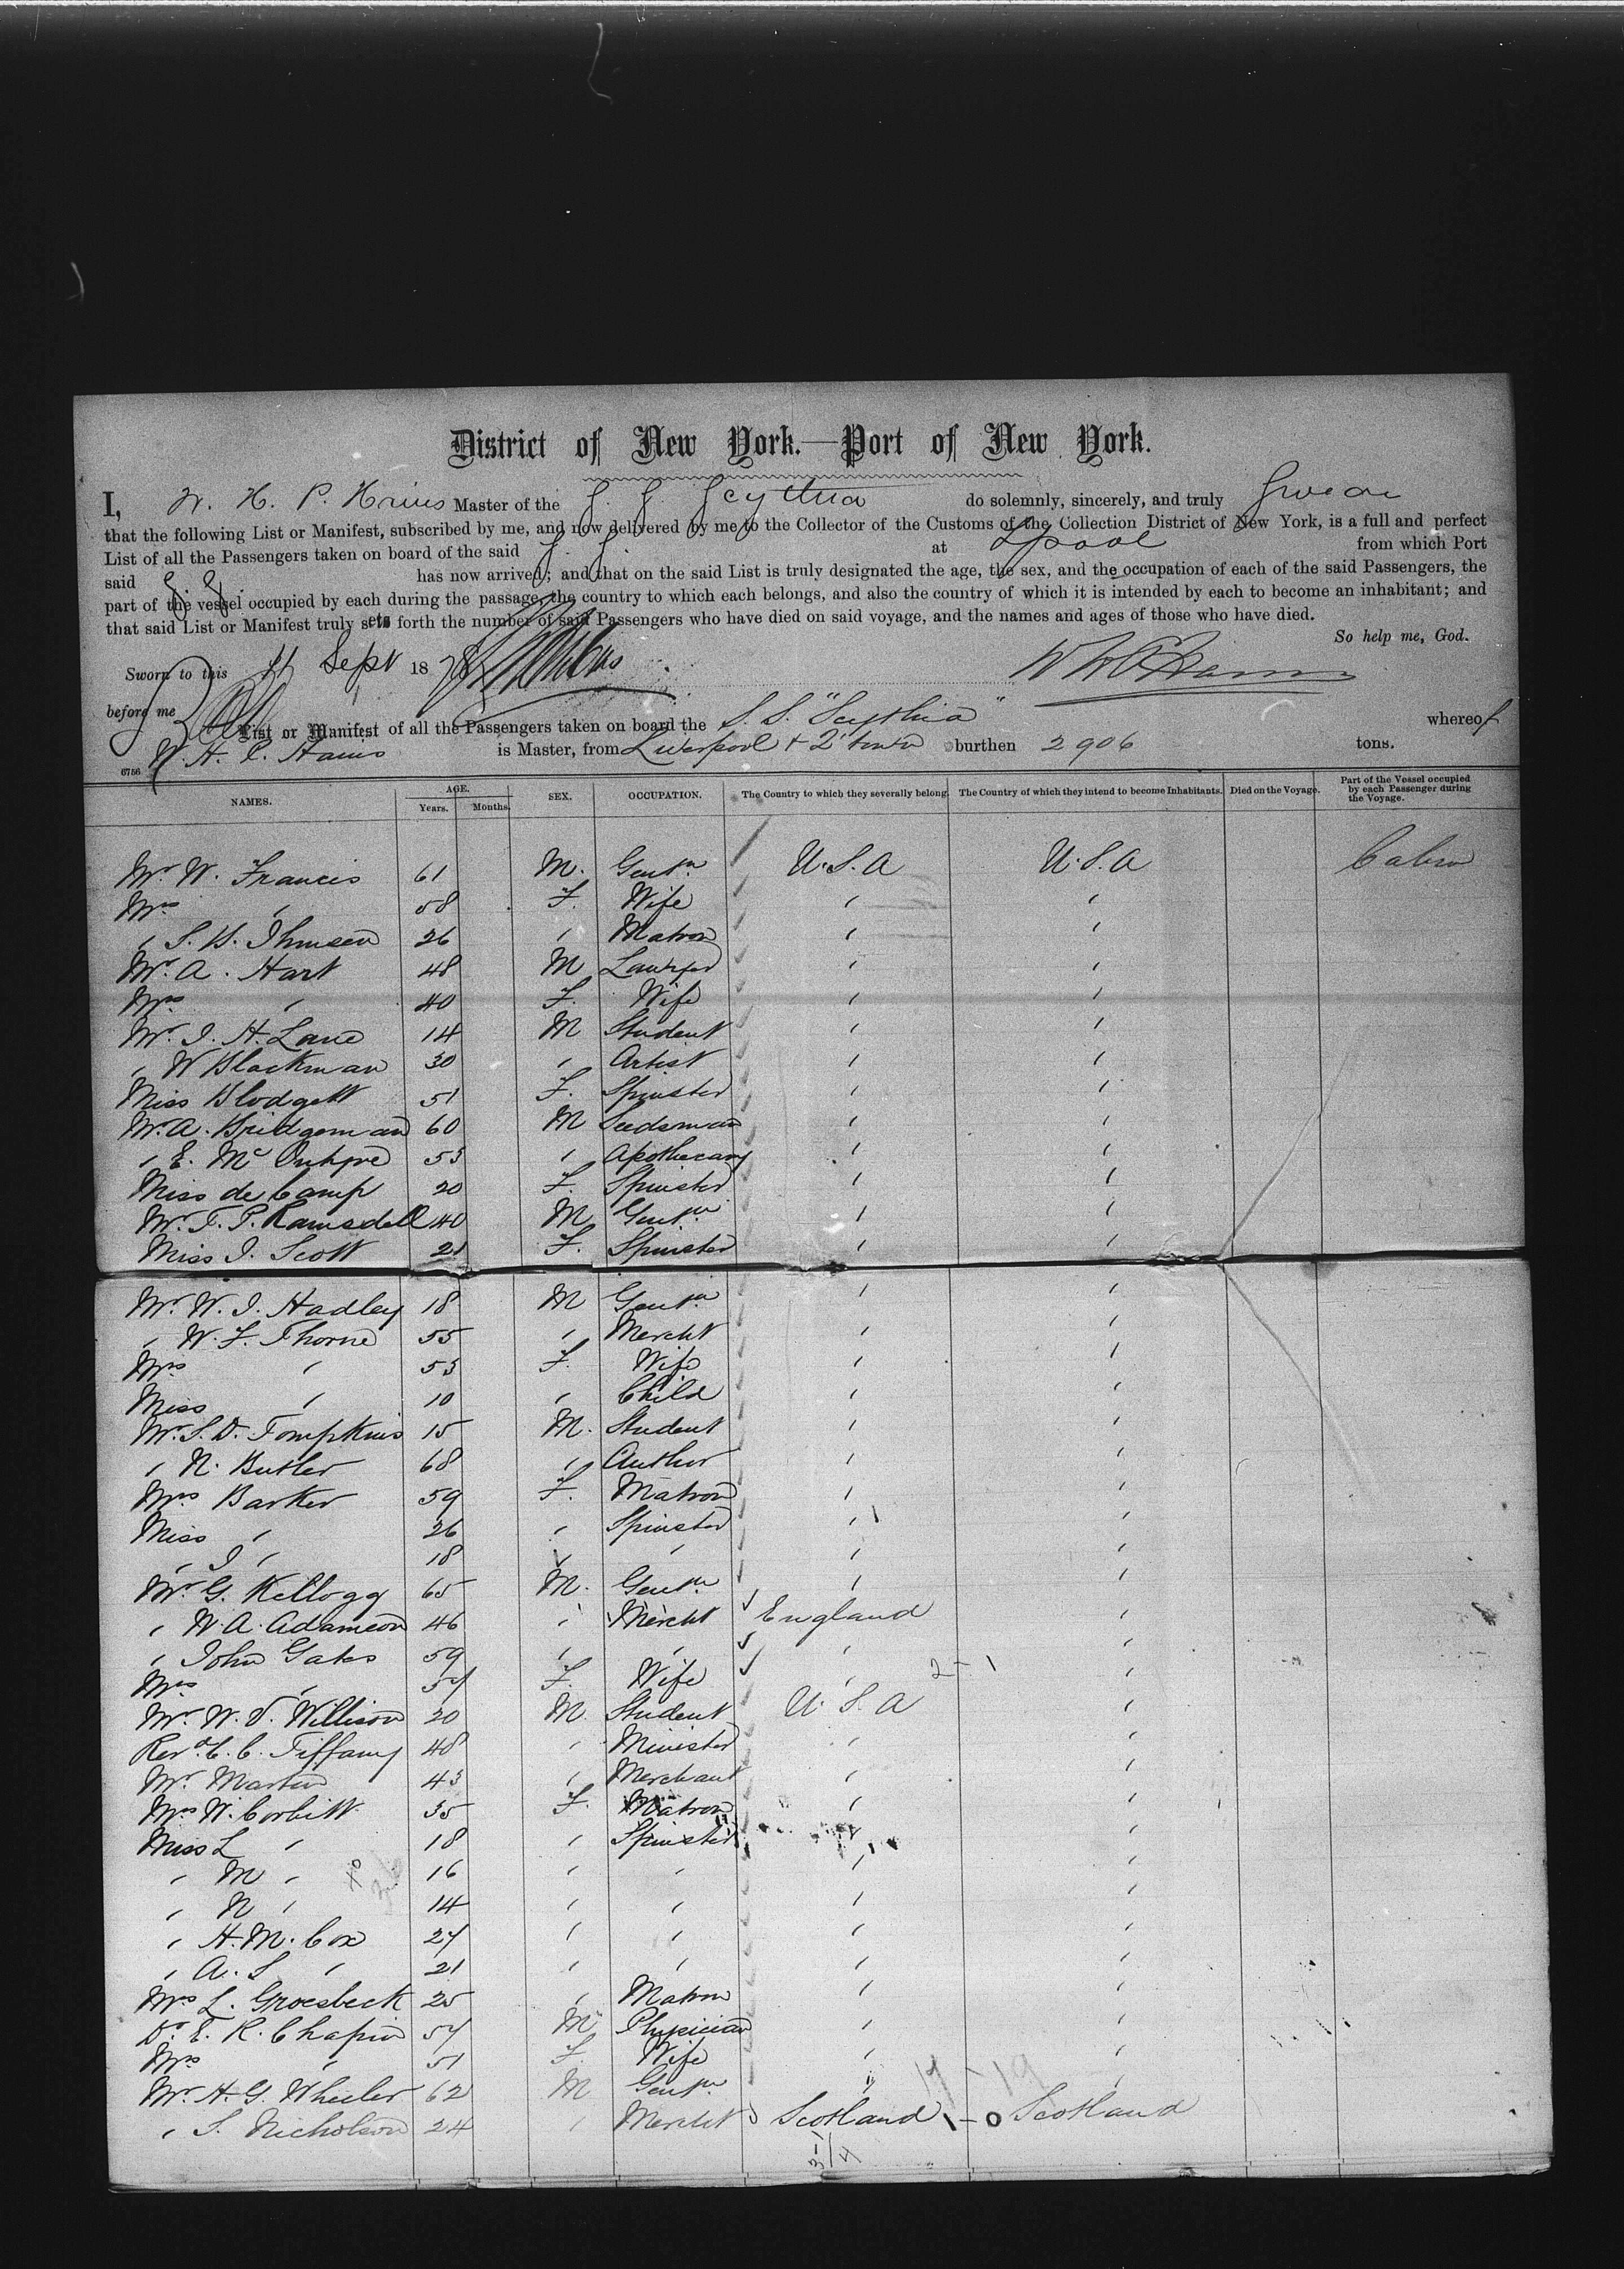 District of New York.—Port of New York.
I, W. H. P. Hains Master of the S. S. Scythia do solemnly, sincerely, and truly Swear
that the following List or Manifest, subscribed by me, and now delivered by me to the Collector of the Customs of the Collection District of New York, is a full and perfect
List of all the Passengers taken on board of the said S. S. at Lpool from which Port
said S. S. has now arrived; and that on the said List is truly designated the age, the sex, and the occupation of each of the said Passengers, the
part of the vessel occupied by each during the passage, the country to which each belongs, and also the country of which it is intended by each to become an inhabitant; and
that said List or Manifest truly sets forth the number of said Passengers who have died on said voyage, and the names and ages of those who have died.
So help me, God.
Sworn to this Sept 1878
before me
List or Manifest of all the Passengers taken on board the S. S. "Scythia" whereof
W. H. P. Hains is Master, from Liverpool + Q'town burthen 2906 tons.
6756
NAMES. AGE. Years. Months. SEX. OCCUPATION. The Country to which they severally belong. The Country of which they intend to become Inhabitants. Died on the Voyage. Part of the Vessel occupied by each Passenger during the Voyage.
Mr. W. Francis 61 M. Gentn U.S.A U.S.A Cabin
Mrs " 58 F. Wife " "
" S. H. Ihmsen 26 " Matron " "
Mr. A. Hart 48 M Lawyer " "
Mrs " 40 F. Wife " "
Mr. J. H. Lane 14 M Student " "
" W Blackman 30 " Artist " "
Miss Blodgett 51 F. Spinster " "
Mr. A. Bridgeman 60 M Seedsman " "
" E. Mc 53 " Apothecary " "
Miss de Camp 20 F. Spinster " "
Mr. T. P. Ramsdell 40 M Gentn " "
Miss J. Scott 21 F. Spinster " "
Mr. W. J. Hadley 18 M Gentn " "
" W. F. Thorne 55 " Mercht " "
Mrs " 53 F. Wife " "
Miss " 10 " Child " "
Mr. S. D. Tompkins 15 M. Student " "
" N. Butler 68 " Author " "
Mrs Barker 59 F. Matron " "
Miss " 26 " Spinster " "
" J " 18 " " " "
Mr. G. Kellogg 65 M. Gentn " "
" W. A. Adamson 46 " Mercht England "
" John Gates 59 " " " "
Mrs " 57 F. Wife " 2-1 "
Mr. W. V. Willison 20 M. Student U.S.A "
Revd. C. C. Tiffany 48 " Minister " "
Mr. Martin 43 " Merchant " "
Mrs W. Corbitt 35 F. Matron " "
Miss L " 18 " Spinster " "
" M " 16 " " " "
" N " 14 " " " "
" H. M. Cox 27 " " " "
" A. S " 21 " " " "
Mrs L. Groesbeck 25 " Matron " "
Dr. E. R. Chapin 57 M Physician " "
Mrs " 51 F. Wife " "
Mr. H. G. Wheeler 62 M Gentn " 17-19 "
" S. Nicholson 24 " Mercht Scotland 1-0 Scotland